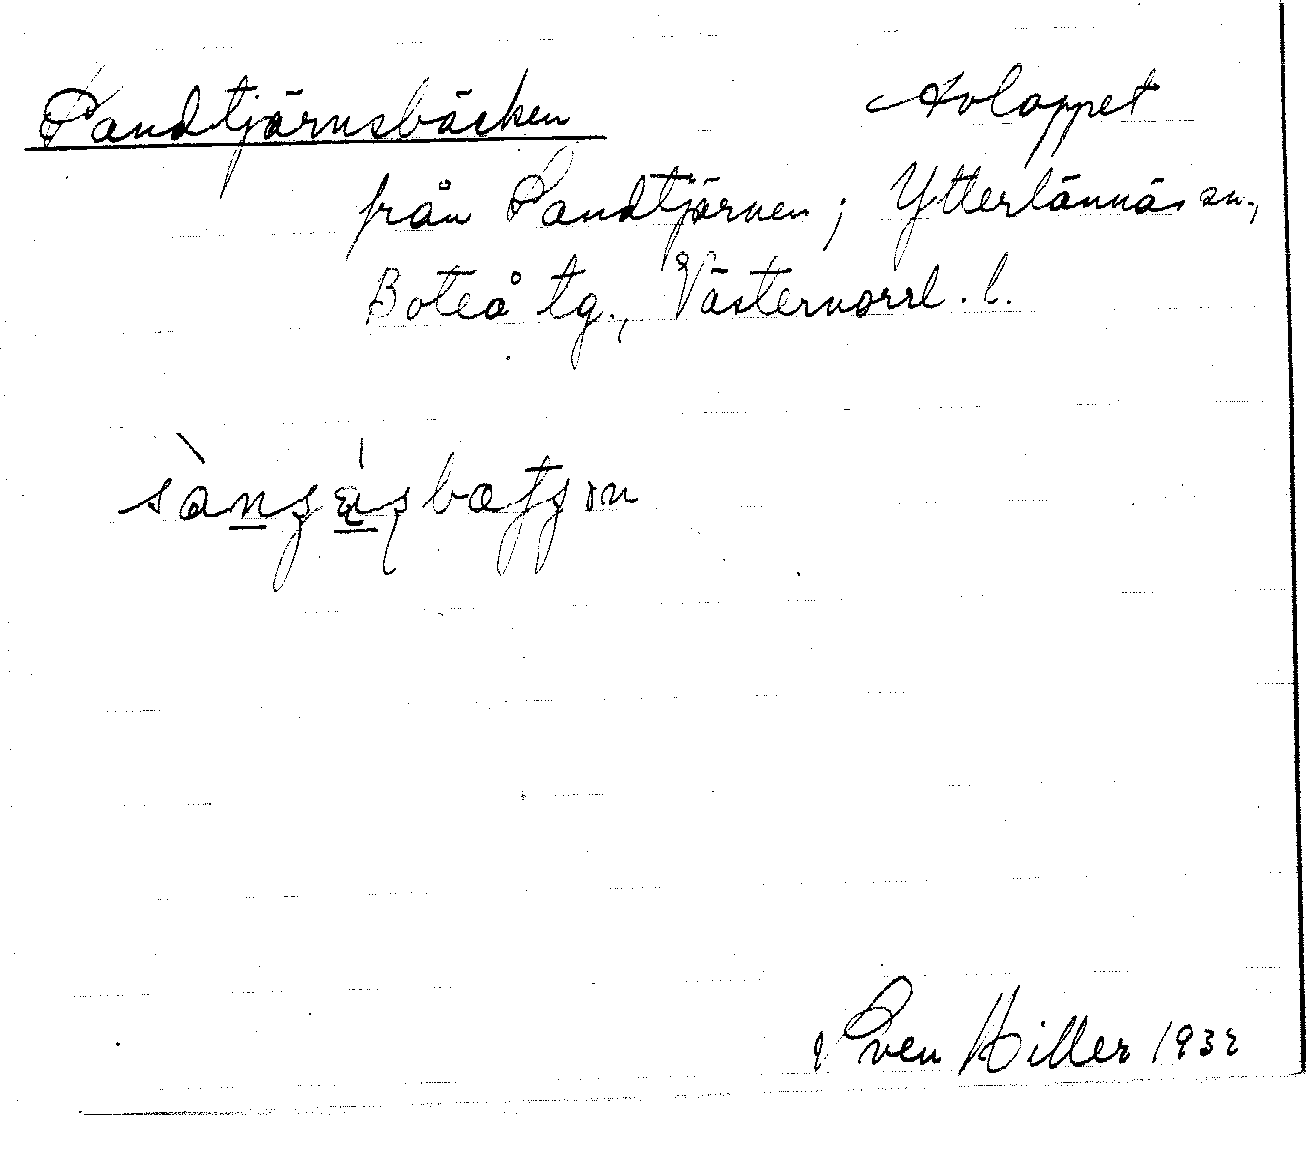 Sandtjärnsbäcken Avloppet
från Sandtjärnen; Ytterlännäs sn.,
Boteå tg., Västernorrl. l.
Sven Hiller 1932